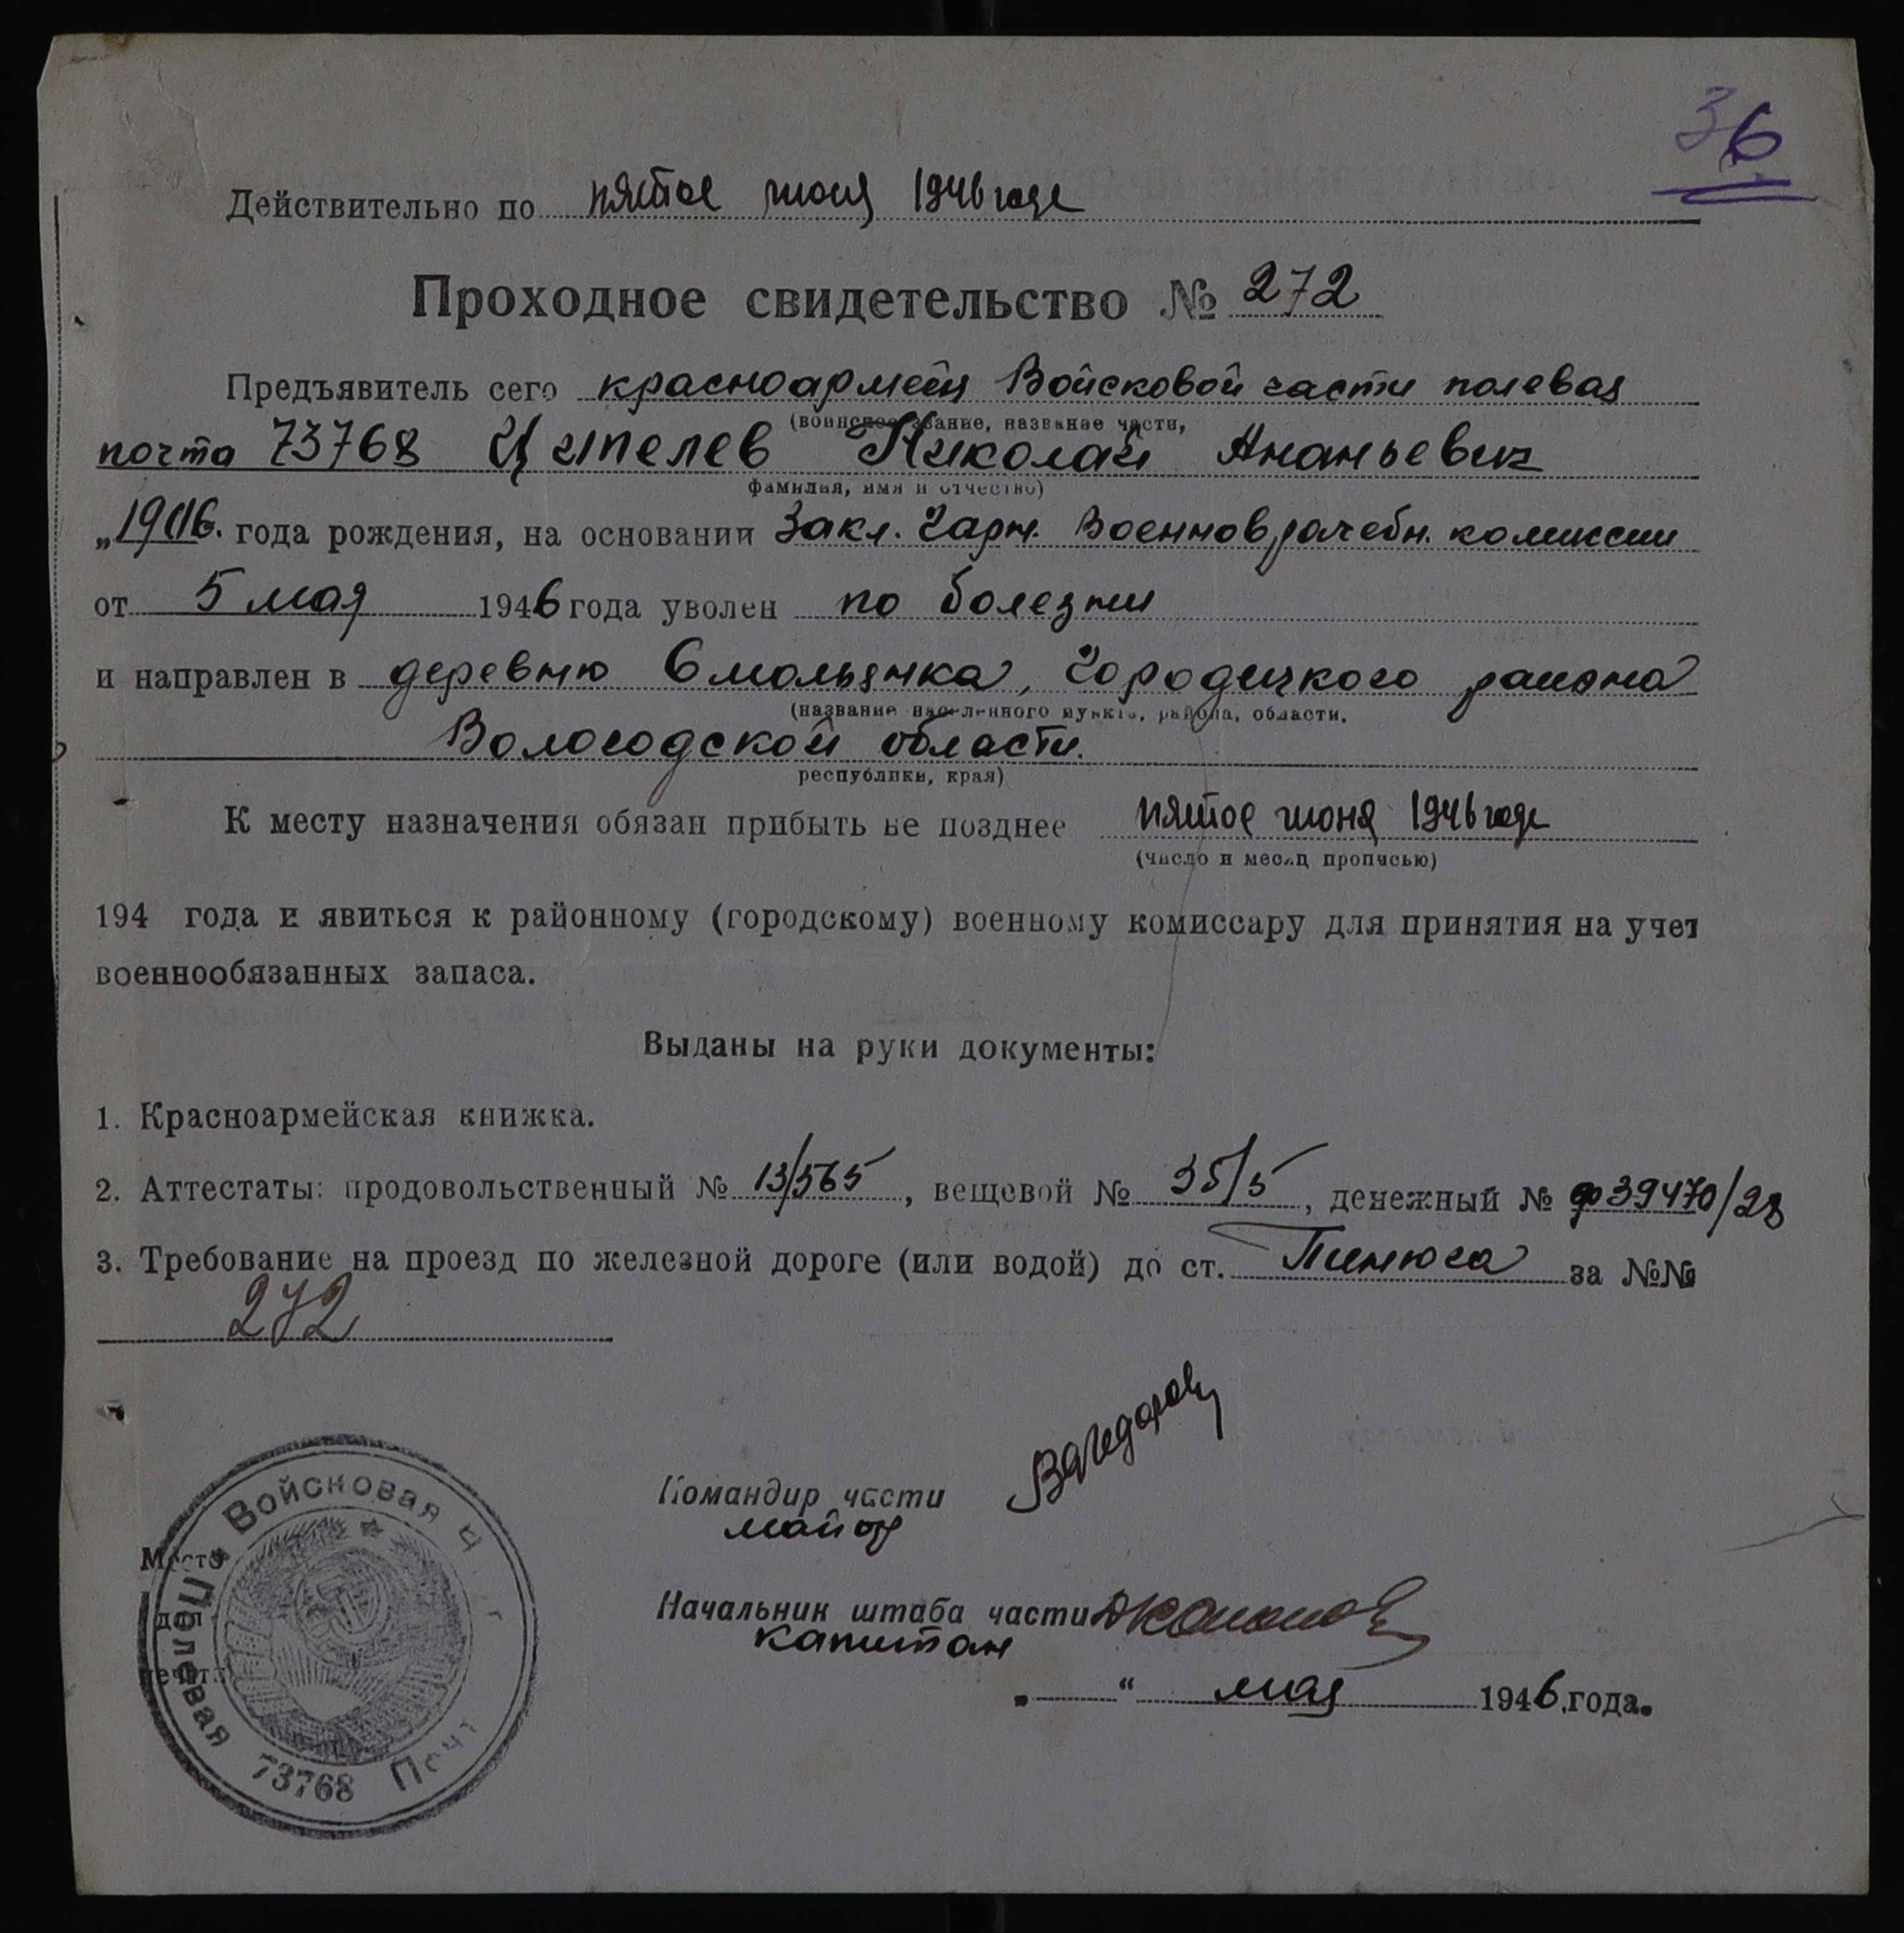 36
Действительно по пятое июня 1946 года
Проходное свидетельство № 272
Предъявитель сего красноармеец Войсковой части полевая
(воинское звание, название части,
почта 73768 Ципелев Николай Ананьевич
фамилия, имя и отчество)
„1916. года рождения, на основании Закл. Гарн. Военноврачебн. комиссии
от 5 мая 1946 года уволен по болезни
и направлен в деревню Смольянка, Городецкого района
(название населенного пункта, района, области,
Вологодской области.
республики, края)
К месту назначения обязан прибыть не позднее пятое июня 1946 года
(число и месяц прописью)
194 года и явиться к районному (городскому) военному комиссару для принятия на учет
военнообязанных запаса.
Выданы на руки документы:
1. Красноармейская книжка.
2. Аттестаты: продовольственный № 13/565, вещевой № 35/5, денежный № ф39470/28
3. Требование на проезд по железной дороге (или водой) до ст. Пинюга за №№
272
Командир части
майор
Начальник штаба части
капитан
„ “ мая 1946 года.
Место
для
печати
Войсковая ч
Полевая Почт
73768